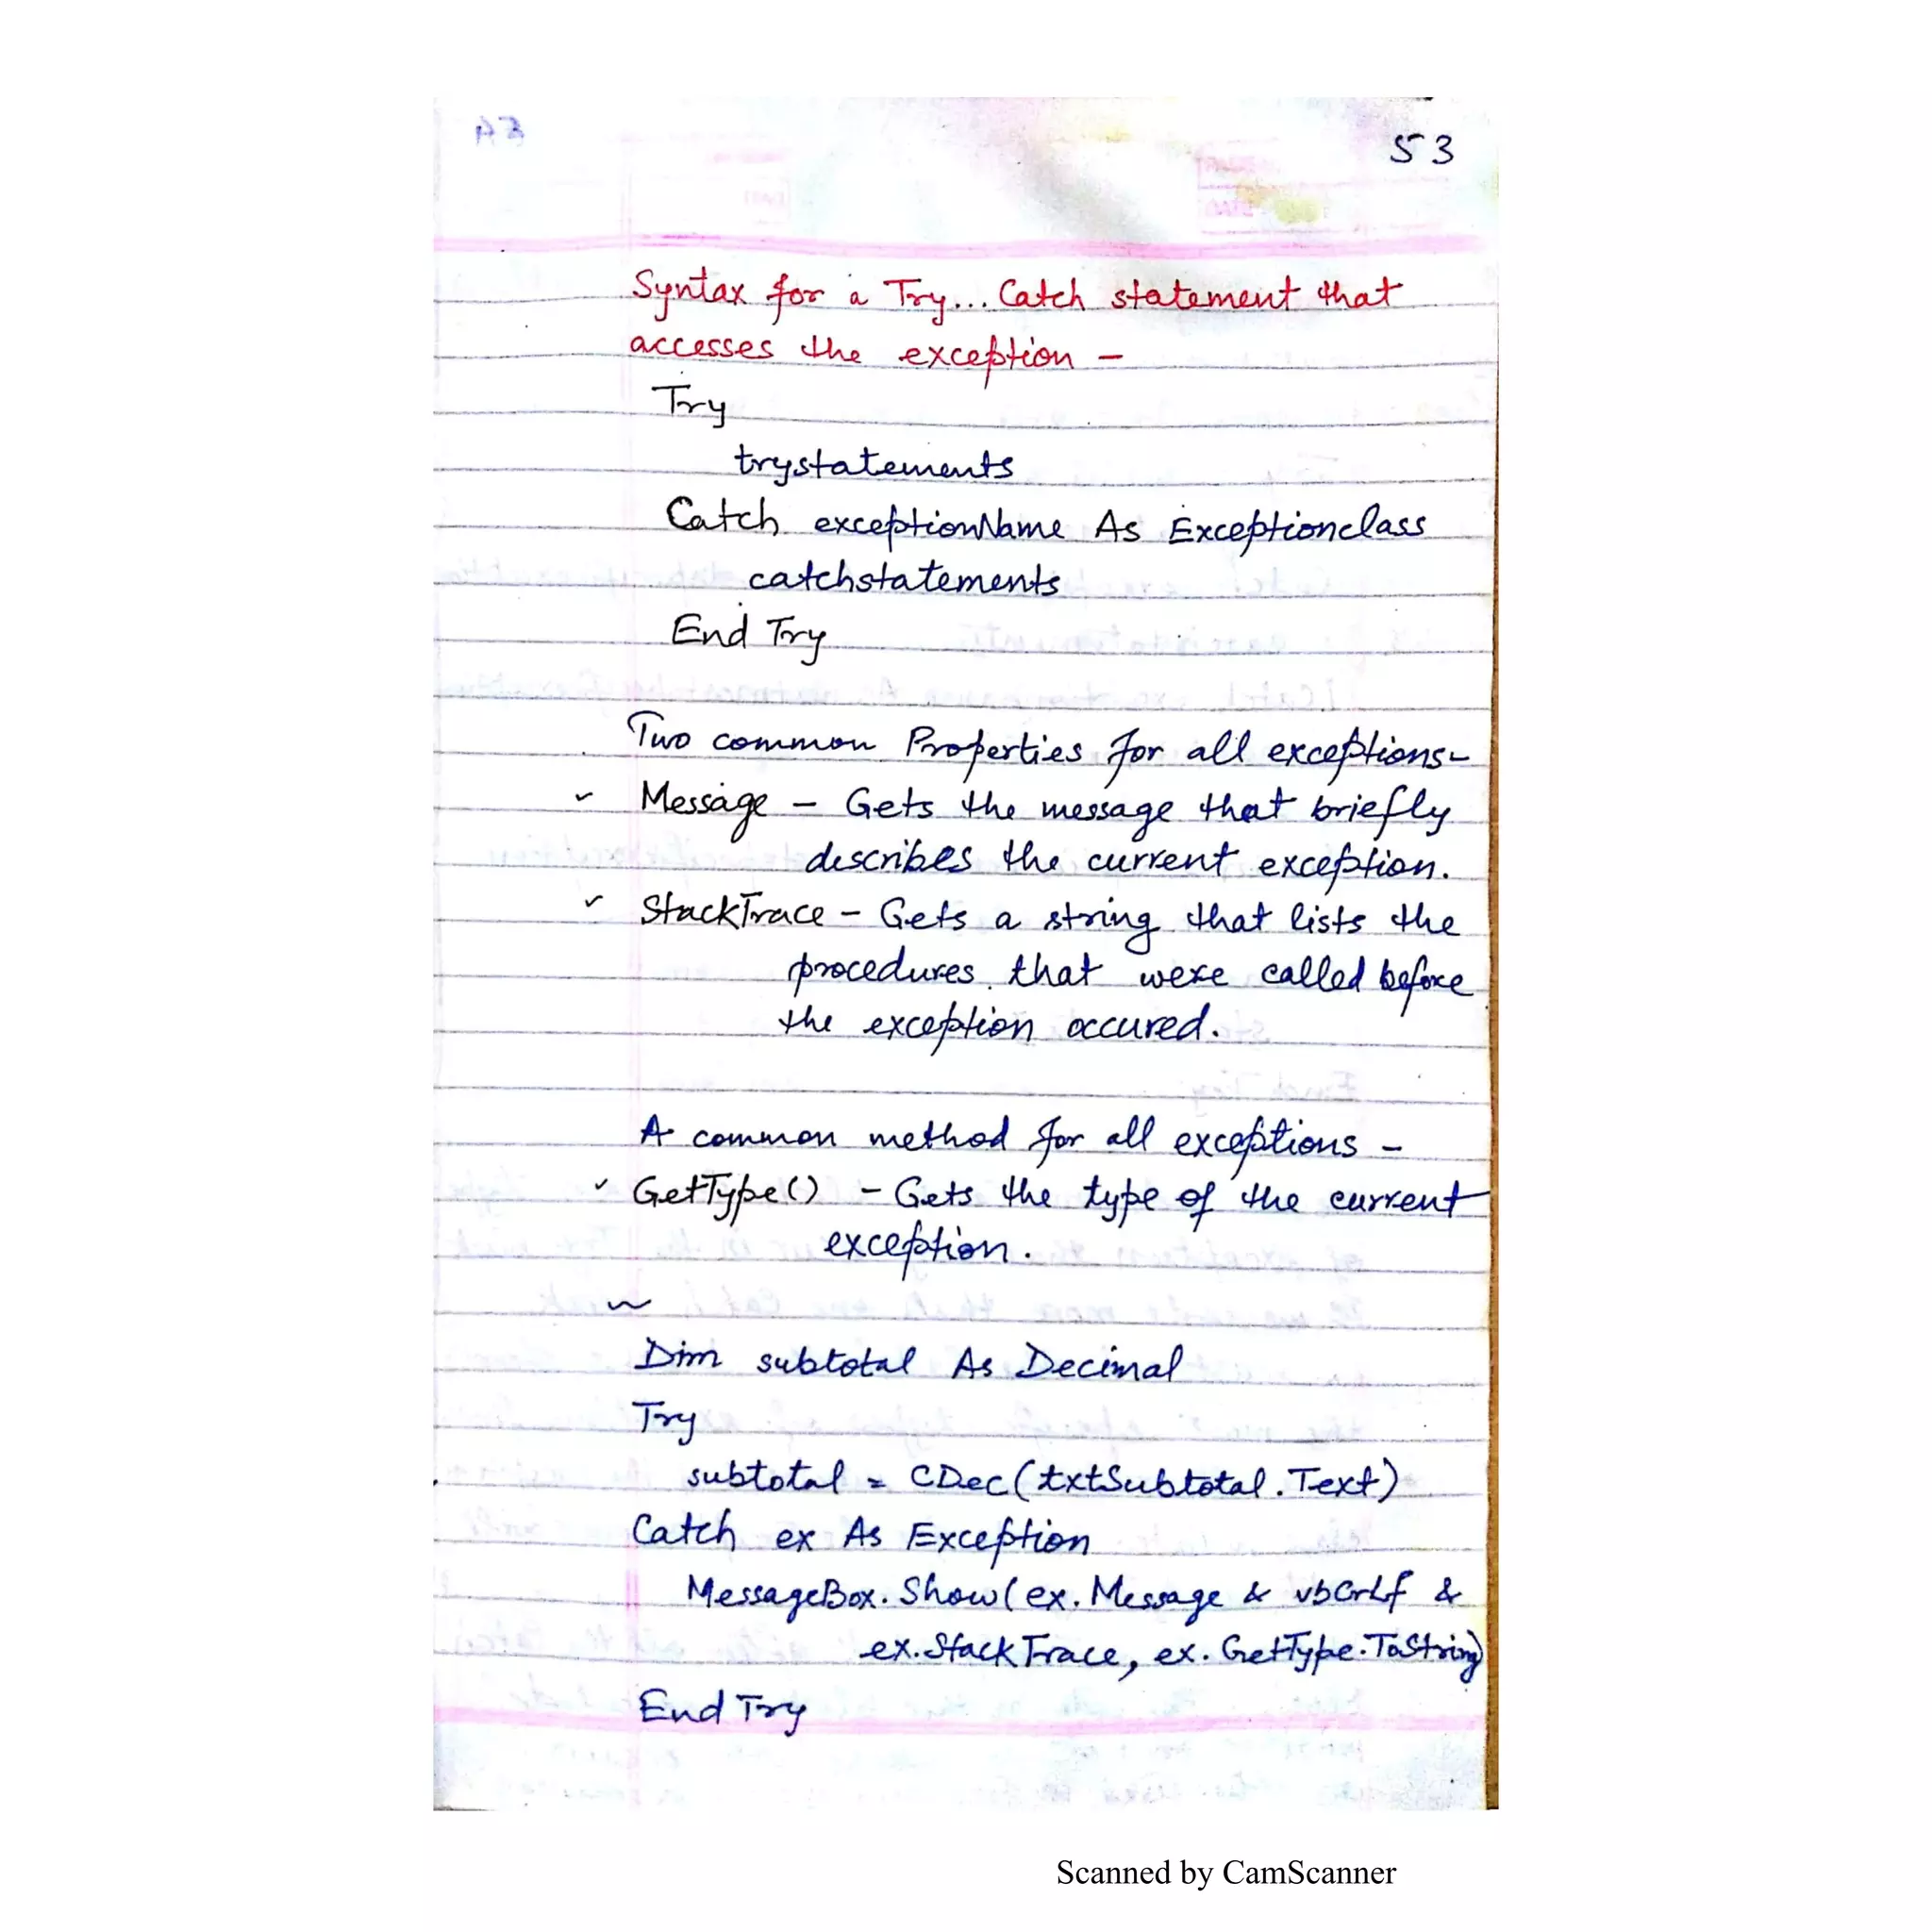 53
Syntax for a Try... Catch statement that
accesses the exception -
Try
trystatements
Catch exceptionName As Exceptionclass
catchstatements
End Try
Two common Properties for all exceptions-
✓ Message - Gets the message that briefly
describes the current exception.
✓ StackTrace - Gets a string that lists the
procedures that were called before
the exception occured.
A common method for all exceptions -
✓ GetType() - Gets the type of the current
exception.
Dim subtotal As Decimal
Try
subtotal = CDec(txtSubtotal.Text)
Catch ex As Exception
MessageBox.Show(ex.Message & vbCrLf &
ex.StackTrace, ex.GetType.ToString)
End Try
Scanned by CamScanner